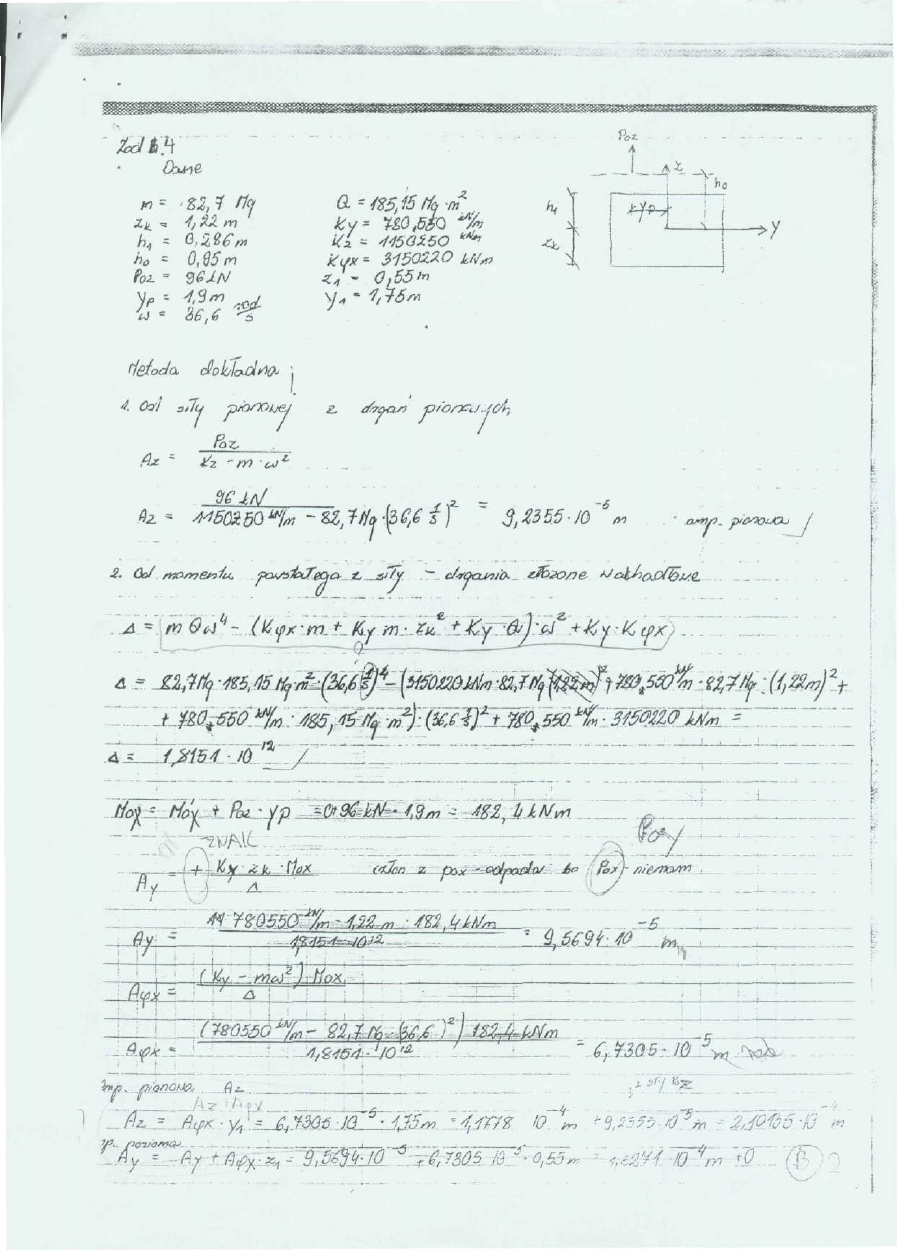 Zad 1.4
Dane
m = 82,7 Mg
zk = 1,22 m
h1 = 0,286 m
h0 = 0,95 m
Poz = 96 kN
yp = 1,9 m
ω = 36,6 rad/s
Θ = 185,15 Mg·m²
Ky = 780,550 kN/m
Kz = 1150250 kN/m
Kφx = 3150220 kNm
z1 = 0,55 m
y1 = 1,75 m
Poz
z
h0
h1
yp
y
zk
Metoda dokładna ;
1. Od siły pionowej z drgań pionowych
Az = Poz / (Kz - m·ω²)
Az = 96 kN / (1150250 kN/m - 82,7 Mg·(36,6 1/s)²) = 9,2355·10⁻⁵ m - amp. pionowa
2. Od momentu powstałego z siły - drgania złożone wahadłowe
Δ = mΘω⁴ - (Kφx·m + Ky·m·zk² + Ky·Θ)·ω² + Ky·Kφx
Δ = 82,7 Mg·185,15 Mg·m²·(36,6 1/s)⁴ - (3150220 kNm·82,7 Mg + 780,550 kN/m·82,7 Mg·(1,22m)² +
+ 780,550 kN/m·185,15 Mg·m²)·(36,6 1/s)² + 780,550 kN/m·3150220 kNm =
Δ = 1,8151·10¹²
Mox = Móx + Poz·yp = 0+96 kN·1,9 m = 182,4 kNm
ZNAK
Poy
Ay = + Ky·zk·Mox / Δ człon z pox odpada bo Pox niemam
Ay = 780550 kN/m·1,22 m·182,4 kNm / 1,8151·10¹² = 9,5694·10⁻⁵ m
Aφx = (Ky - mω²)·Mox / Δ
Aφx = (780550 kN/m - 82,7 Mg·(36,6)²) 182,4 kNm / 1,8151·10¹² = 6,7305·10⁻⁵ rad
amp. pionowa Az
Az = Aφx·y1 = 6,7305·10⁻⁵·1,75m = 1,1778 10⁻⁴ m + 9,2355·10⁻⁵ m = 2,10135·10⁻⁴ m
amp. pozioma
Ay = Ay + Aφx·z1 = 9,5694·10⁻⁵ + 6,7305 10⁻⁵·0,55 m = 1,3271·10⁻⁴ m + 0
B